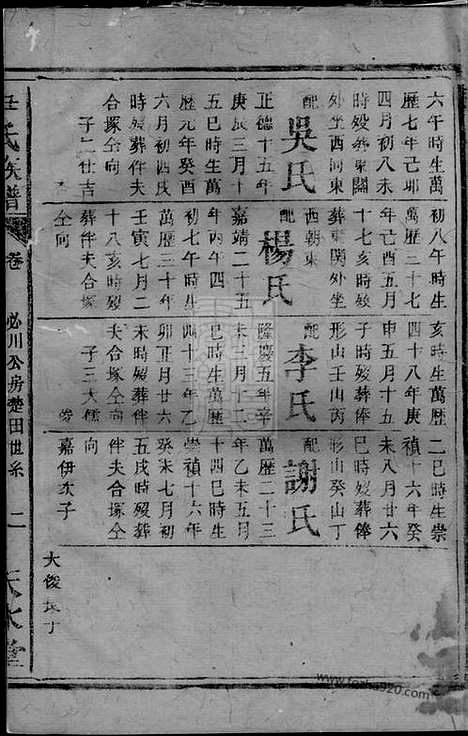 六午時生萬
歷七年己卯
四月初八未
時歿葬東關
外坐西向東
配吳氏
正德十五年
庚辰三月十
五巳時生萬
歷元年癸酉
六月初四戌
時歿葬伴夫
合塚仝向
子二仕吉
初八午時生
萬歷二十七
年己亥五月
十七亥時歿
葬東關外坐
西朝東
配楊氏
嘉靖二十五
年丙午四月
初七午時生
萬歷三十年
壬寅七月二
十八亥時歿
葬伴夫合塚
仝向
亥時生萬歷
四十八年庚
申五月十五
子時歿葬俸
形山壬山丙
配李氏
隆慶五年辛
未三月十二
未時生萬歷
四十三年乙
卯正月廿六
未時歿葬伴
夫合塚仝向
子三大儒
二巳時生崇
禎十六年癸
未八月廿六
巳時歿葬俸
形山癸山丁
配謝氏
萬歷二十三
年乙未五月
十四巳時生
崇禎十六年
癸未七月初
五戌時歿葬
伴夫合塚仝
向
嘉伊次子
大俊長子
氏族譜
卷
必川公房楚田世系
二
天水堂
www.fozhu920.com